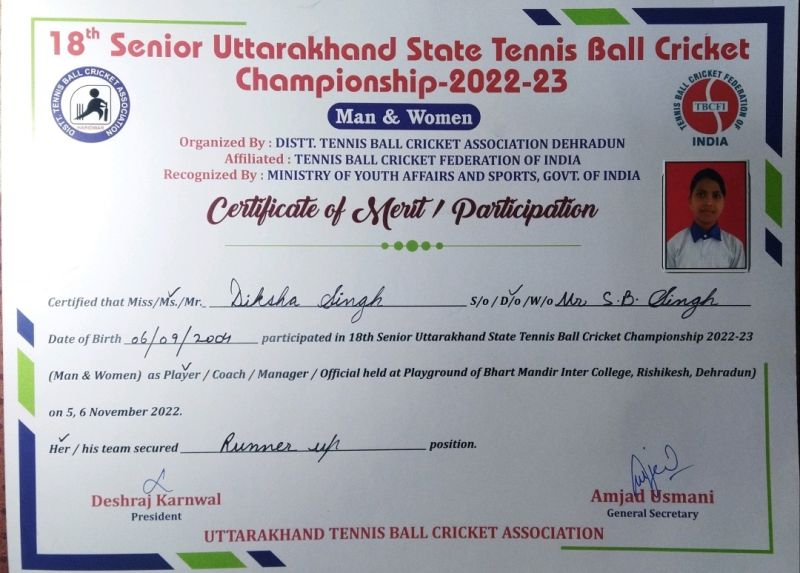 18th Senior Uttarakhand State Tennis Ball Cricket
Championship-2022-23
DISTT. TENNIS BALL CRICKET ASSOCIATION
HARIDWAR
TENNIS BALL CRICKET FEDERATION OF
TBCFI
INDIA
Man & Women
Organized By : DISTT. TENNIS BALL CRICKET ASSOCIATION DEHRADUN
Affiliated : TENNIS BALL CRICKET FEDERATION OF INDIA
Recognized By : MINISTRY OF YOUTH AFFAIRS AND SPORTS, GOVT. OF INDIA
Certificate of Merit / Participation
Certified that Miss/Ms./Mr. Diksha Singh S/o / D/o /W/o Mr. S.B. Singh
Date of Birth 06/09/2004 participated in 18th Senior Uttarakhand State Tennis Ball Cricket Championship 2022-23
(Man & Women) as Player / Coach / Manager / Official held at Playground of Bhart Mandir Inter College, Rishikesh, Dehradun)
on 5, 6 November 2022.
Her / his team secured Runner up position.
Deshraj Karnwal
President
Amjad Usmani
General Secretary
UTTARAKHAND TENNIS BALL CRICKET ASSOCIATION